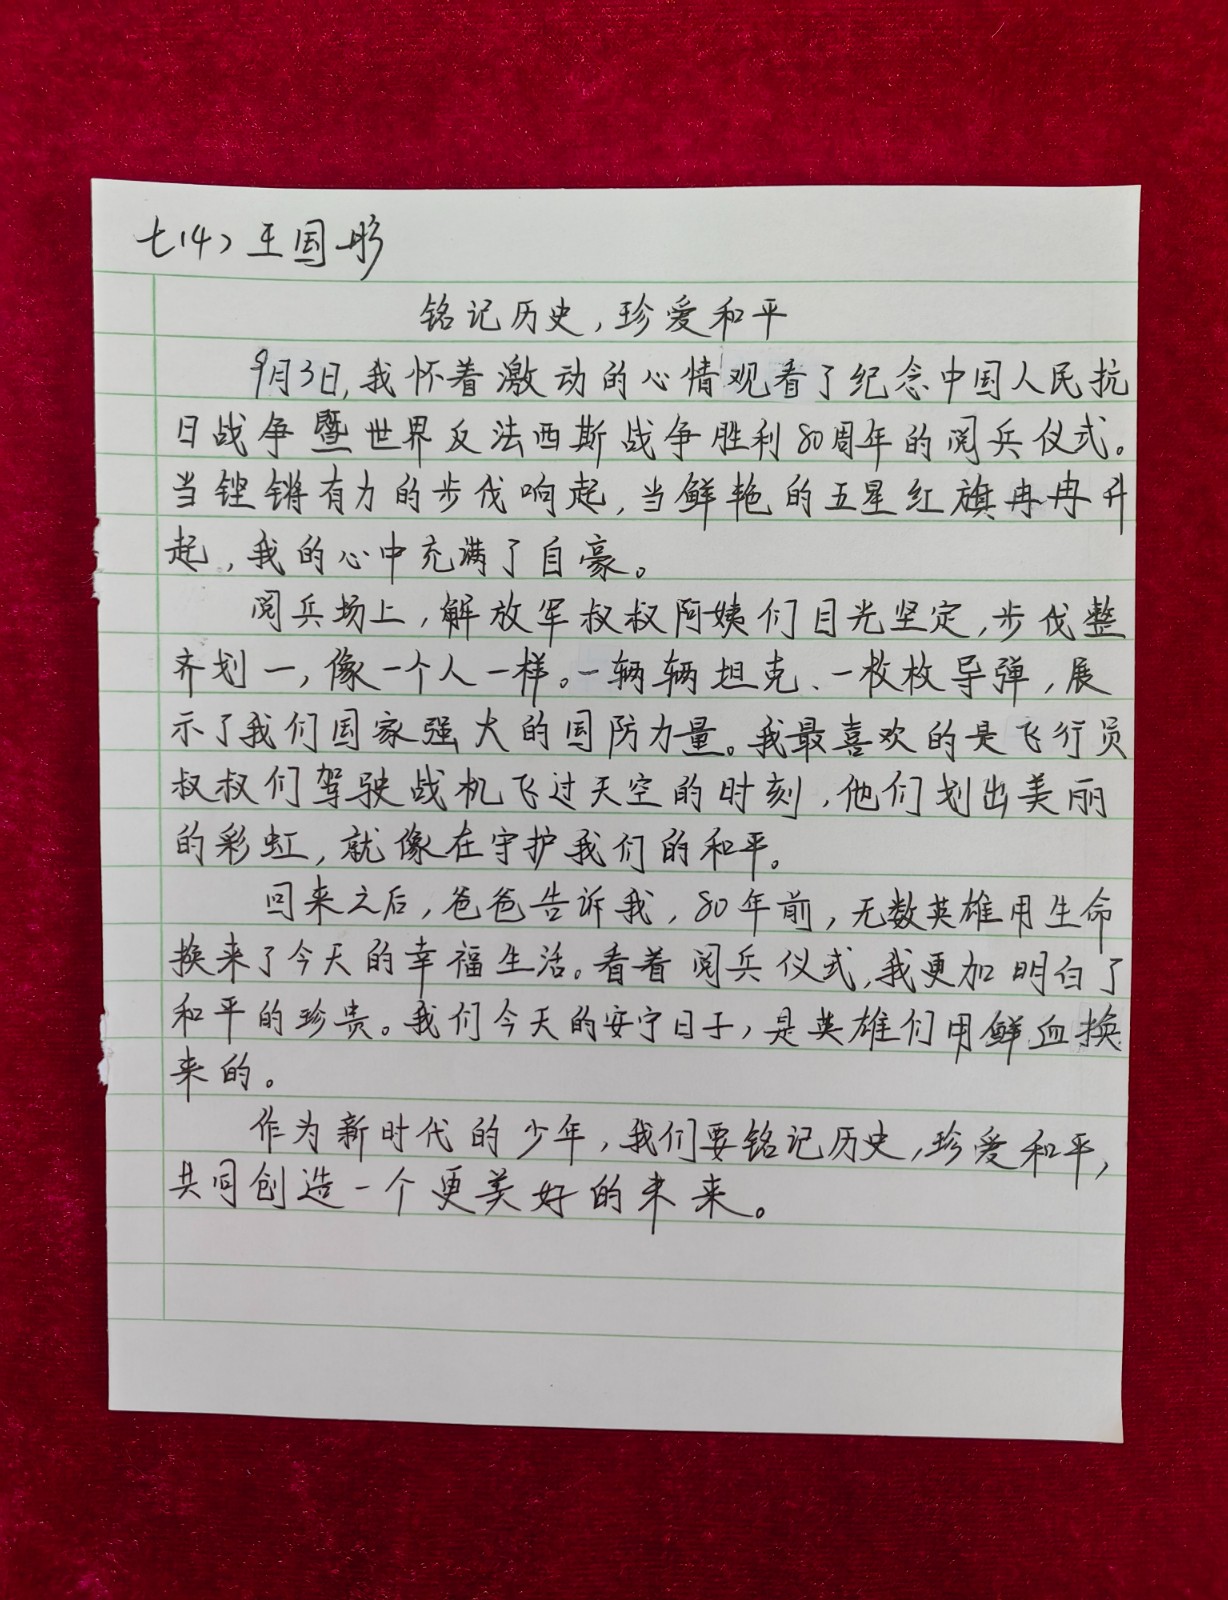 七(4) 王国彤
铭记历史,珍爱和平
9月3日,我怀着激动的心情观看了纪念中国人民抗
日战争暨世界反法西斯战争胜利80周年的阅兵仪式。
当铿锵有力的步伐响起,当鲜艳的五星红旗冉冉升
起,我的心中充满了自豪。
阅兵场上,解放军叔叔阿姨们目光坚定,步伐整
齐划一,像一个人一样。一辆辆坦克、一枚枚导弹,展
示了我们国家强大的国防力量。我最喜欢的是飞行员
叔叔们驾驶战机飞过天空的时刻,他们划出美丽
的彩虹,就像在守护我们的和平。
回来之后,爸爸告诉我,80年前,无数英雄用生命
换来了今天的幸福生活。看着阅兵仪式,我更加明白了
和平的珍贵。我们今天的安宁日子,是英雄们用鲜血换
来的。
作为新时代的少年,我们要铭记历史,珍爱和平,
共同创造一个更美好的未来。